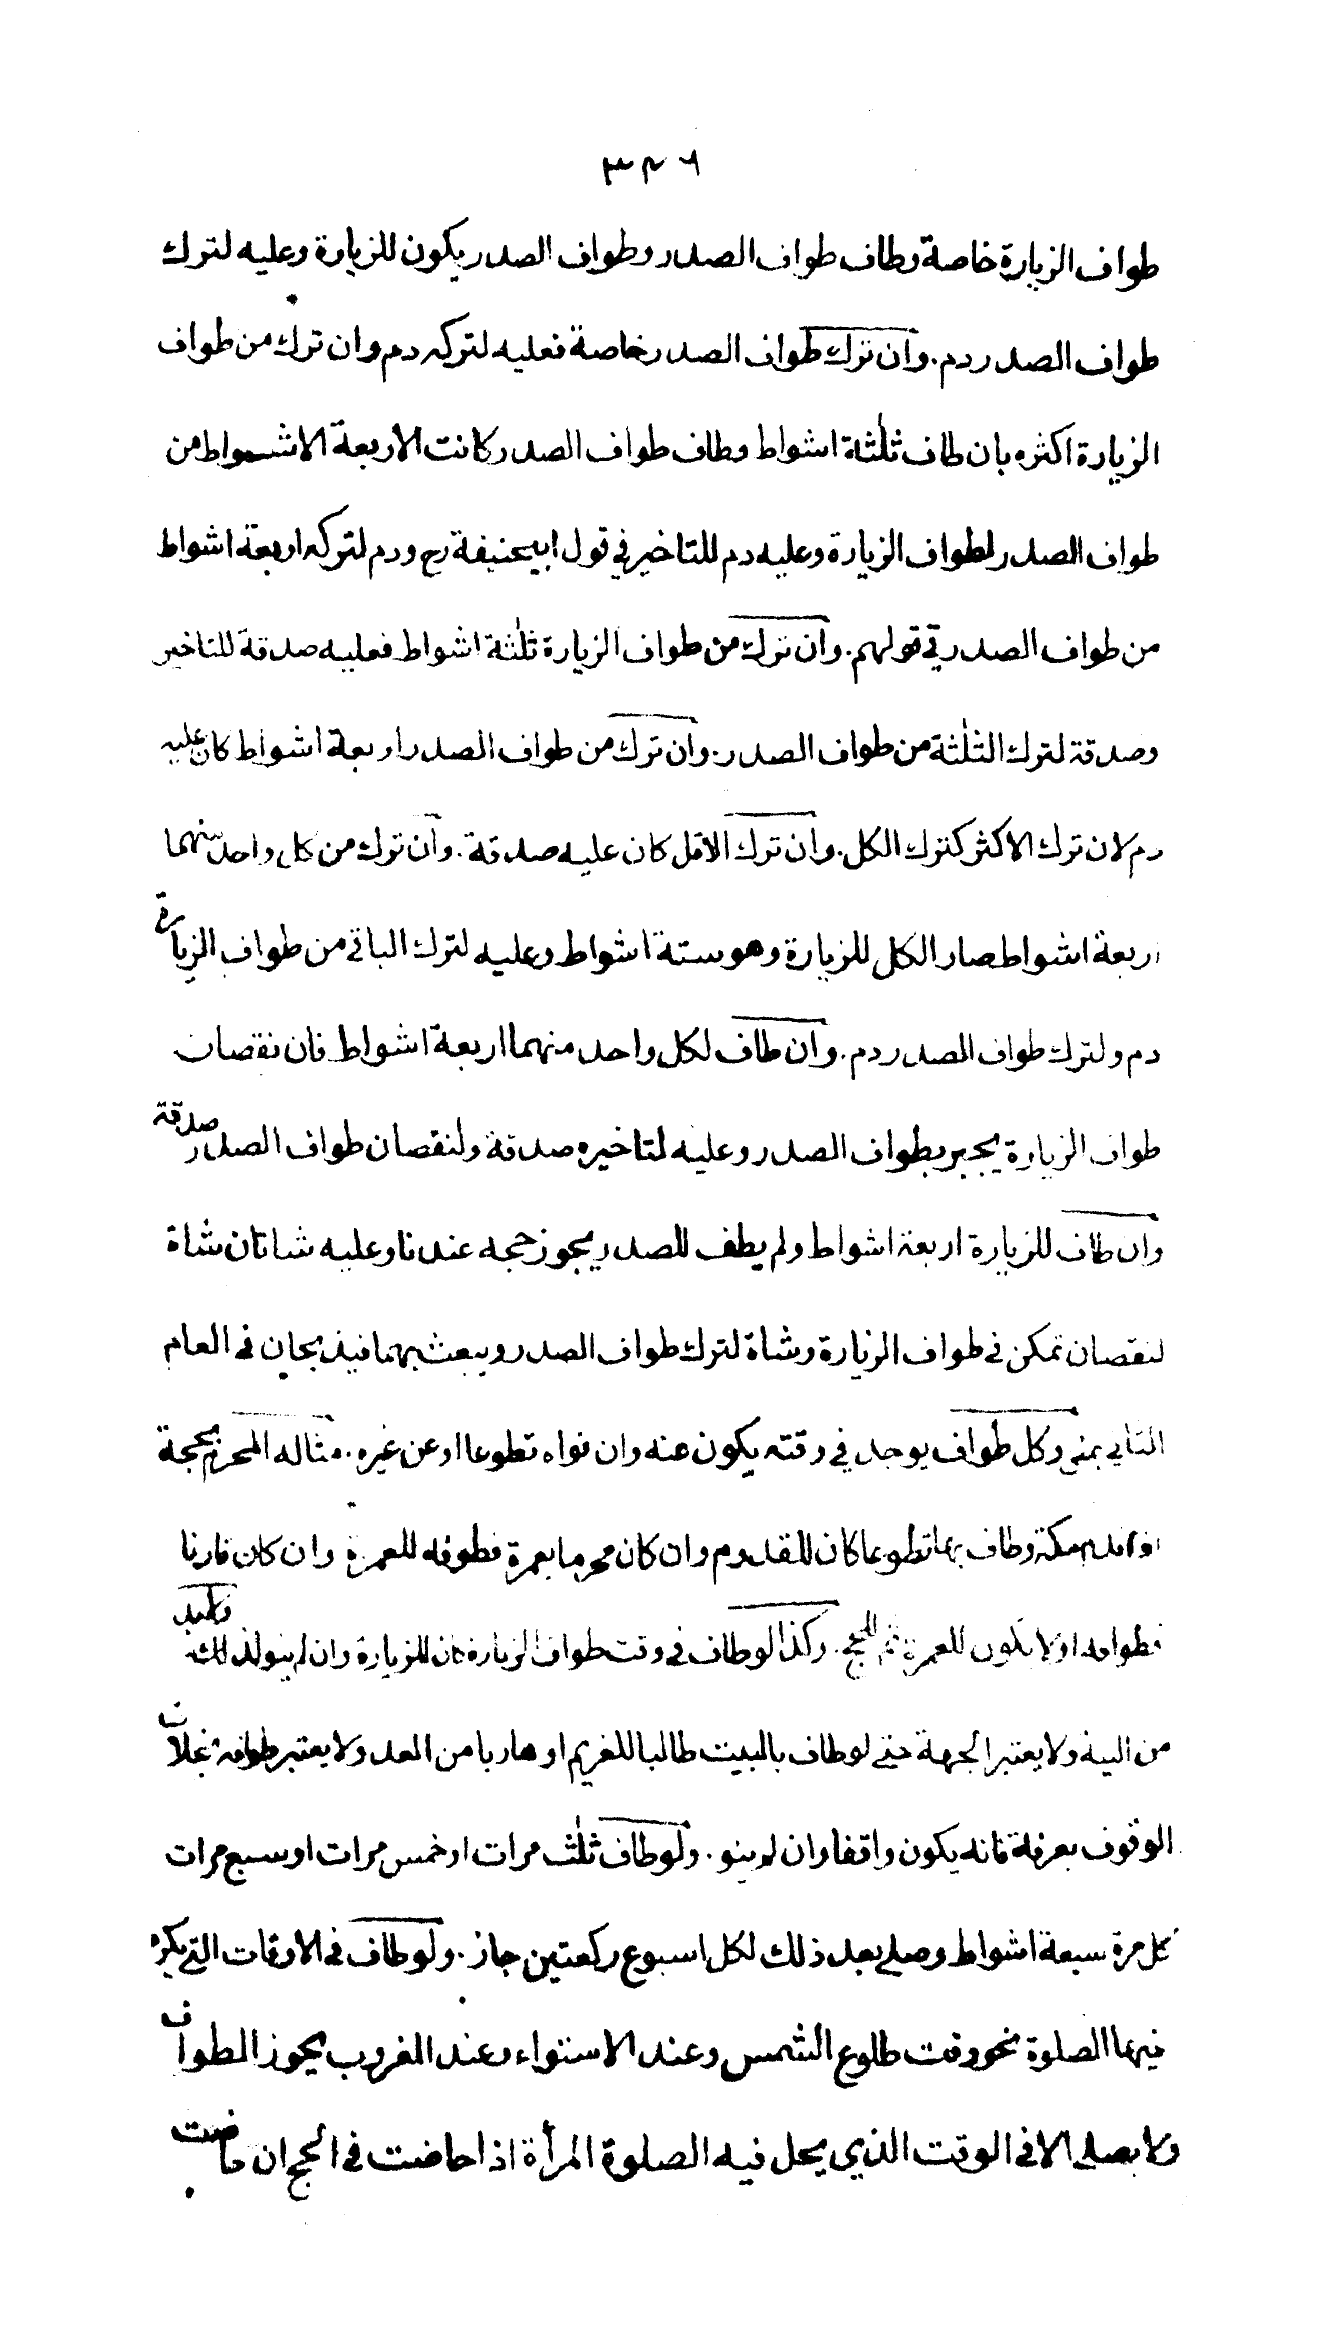 ٣٢٦
طواف الزيارة خاصة وطاف طواف الصدر وطواف الصدر يكون للزيارة وعليه لترك
طواف الصدر دم. وان ترك طواف الصدر خاصة فعليه لتركه دم وان ترك من طواف
الزيارة اكثره بان طاف ثلٰثة اشواط وطاف طواف الصدر كانت الاربعة الاشواط من
طواف الصدر لطواف الزيارة وعليه دم للتاخير في قول ابيحنيفة رح ودم لتركه اربعة اشواط
من طواف الصدر في قولهم. وان ترك من طواف الزيارة ثلٰثة اشواط فعليه صدقة للتاخير
وصدقة لترك الثلٰثة من طواف الصدر. وان ترك من طواف الصدر اربعة اشواط كان عليه
دم لان ترك الاكثر كترك الكل. وان ترك الاقل كان عليه صدقة. وان ترك من كل واحد منهما
اربعة اشواط صار الكل للزيارة وهو ستة اشواط وعليه لترك الباقي من طواف الزيارة
دم ولترك طواف الصدر دم. وان طاف لكل واحد منهما اربعة اشواط فان نقصان
طواف الزيارة يجبر بطواف الصدر وعليه لتاخيره صدقة ولنقصان طواف الصدر صدقة
وان طاف للزيارة اربعة اشواط ولم يطف للصدر يجوز حجه عندنا وعليه شاتان شاة
لنقصان تمكن في طواف الزيارة وشاة لترك طواف الصدر ويبعث بهما فيذبحان في العام
الثاني بمنى وكل طواف يوجد في وقته يكون عنه وان نواه تطوعا او عن غيره. مثاله المحرم بحجة
اذا قدم مكة وطاف بها تطوعا كان للقدوم وان كان محرما بعمرة فطوفه للعمرة وان كان قارنا
فطوافه اولا يكون للعمرة ثم للحج. وكذا لو طاف في وقت طواف الزيارة كان للزيارة وان لم ينو لذلك ولابد
من النية ولا يعتبر الجهة حتى لو طاف بالبيت طالبا للغريم او هاربا من العدو لا يعتبر طوافه بخلاف
الوقوف بعرفة فانه يكون واقفا وان لم ينو. ولو طاف ثلٰث مرات او خمس مرات او سبع مرات
كل مرة سبعة اشواط وصلى بعد ذلك لكل اسبوع ركعتين جاز. ولو طاف في الاوقات التي يكره
فيها الصلوة نحو وقت طلوع الشمس وعند الاستواء وعند الغروب يجوز الطواف
ولا يصلى الا في الوقت الذي يحل فيه الصلوة المرأة اذا حاضت في الحج ان حاضت